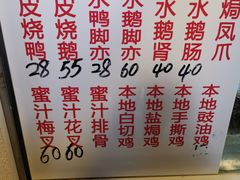 皮烧鸭
皮烧鹅
水鸭脚亦
水鹅脚亦
水鹅肾
水鹅肠
焗凤爪
28 55 28 60 40 40
蜜汁梅叉
蜜汁花叉
蜜汁排骨
本地白切鸡
本地盐焗鸡
本地手撕鸡
本地豉油鸡
60 60